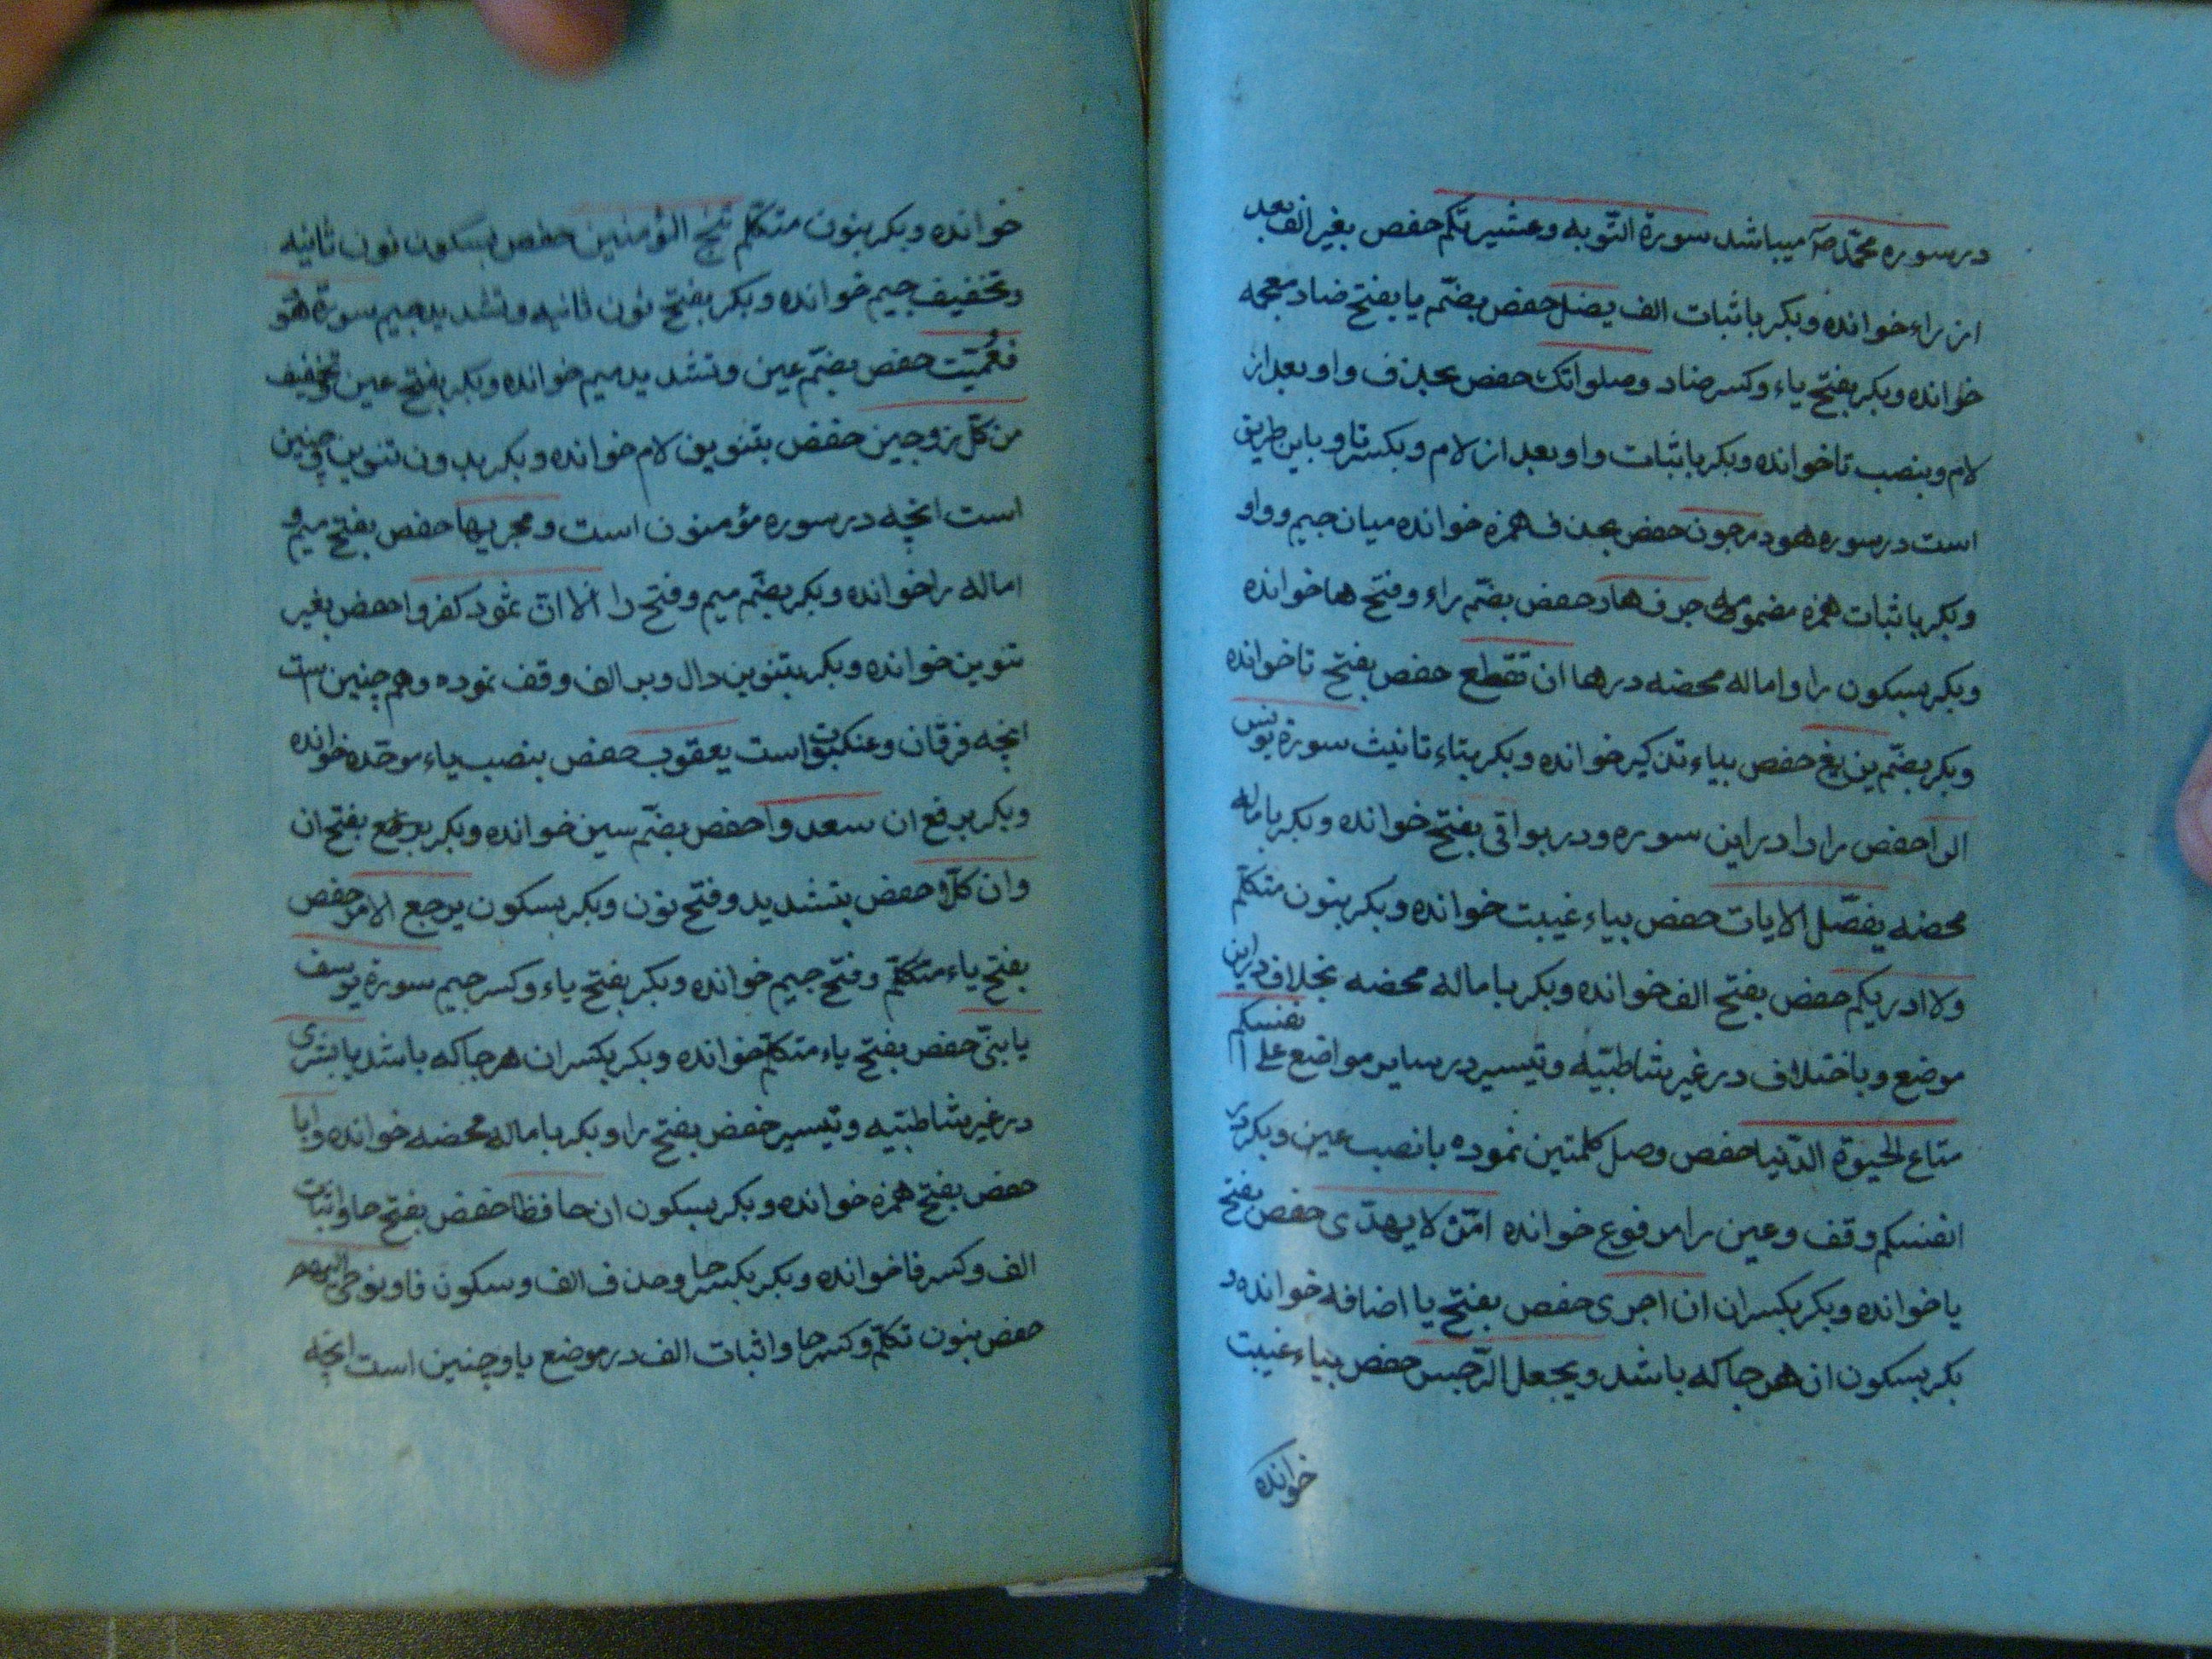 در سوره محمد ص میباشد سورة التوبه وعشیرتکم حفص بغیر الف بعد
از راء خوانده وبکر باثبات الف یضل حفص بضم یا بفتح ضاد معجمه
خوانده وبکر بفتح یاء وکسر ضاد وصلواتک حفص بحذف واو بعد از
لام وبنصب تا خوانده وبکر باثبات واو بعد از لام وبکسر تا و باین طریق
است در سوره هود مرجون حفص بحذف همزه خوانده میان جیم وواو
وبکر باثبات همزه مضمومه جرف هار حفص بضم راء وفتح ها خوانده
وبکر بسکون را واماله محضه در ها ان تقطع حفص بفتح تا خوانده
وبکر بضم یزیغ حفص بیاء تذکیر خوانده وبکر بتاء تانیث سورة یونس
الر حفص را را در این سوره ودر بواقی بفتح خوانده وبکر باماله
محضه یفصل الایات حفص بیاء غیبت خوانده وبکر بنون متکلم
ولا ادریکم حفص بفتح الف خوانده وبکر باماله محضه بخلاف در این
موضع وباختلاف در غیر شاطبیه وتیسیر در سایر مواضع علی انفسکم
متاع الحیوة الدنیا حفص وصل کلمتین نموده بانصب عین وبکر در
انفسکم وقف وعین را مرفوع خوانده امن لا یهدی حفص بفتح
یا خوانده وبکر بکسر ان ان اجری حفص بفتح یا اضافه خوانده و
بکر بسکون ان هر جا که باشد ویجعل الرجس حفص بیاء غیبت
خوانده
خوانده وبکر بنون متکلم ننج المؤمنین حفص بسکون نون ثانیه
وتخفیف جیم خوانده وبکر بفتح نون ثانیه وتشدید جیم سورة هود
فعمیت حفص بضم عین وتشدید میم خوانده وبکر بفتح عین وتخفیف
من کل زوجین حفص بتنوین لام خوانده وبکر بدون تنوین وچنین
است انچه در سوره مؤمنون است ومجریها حفص بفتح میم و
اماله را خوانده وبکر بضم میم وفتح را الا ان ثمود کفروا حفص بغیر
تنوین خوانده وبکر بتنوین دال وبر الف وقف نموده وهم چنین است
انچه فرقان وعنکبوت است یعقوب حفص بنصب یاء موحده خوانده
وبکر برفع ان سعدوا حفص بضم سین خوانده وبکر بفتح ان
وان کلا حفص بتشدید وفتح نون وبکر بسکون یرجع الامر حفص
بفتح یاء متکلم وفتح جیم خوانده وبکر بفتح یاء وکسر جیم سورة یوسف
یا بنی حفص بفتح یاء متکلم خوانده وبکر بکسر ان هر جا که باشد یا بشری
در غیر شاطبیه وتیسیر حفص بفتح را وبکر باماله محضه خوانده دابا
حفص بفتح همزه خوانده وبکر بسکون ان حافظا حفص بفتح حا واثبات
الف وکسر فا خوانده وبکر بکسر حا وحذف الف وسکون فا ونوحی الیهم
حفص بنون تکلم وکسر حا واثبات الف در موضع یا وچنین است انچه